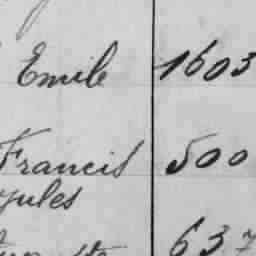 Emile 1603
Francis 500
Jules
637